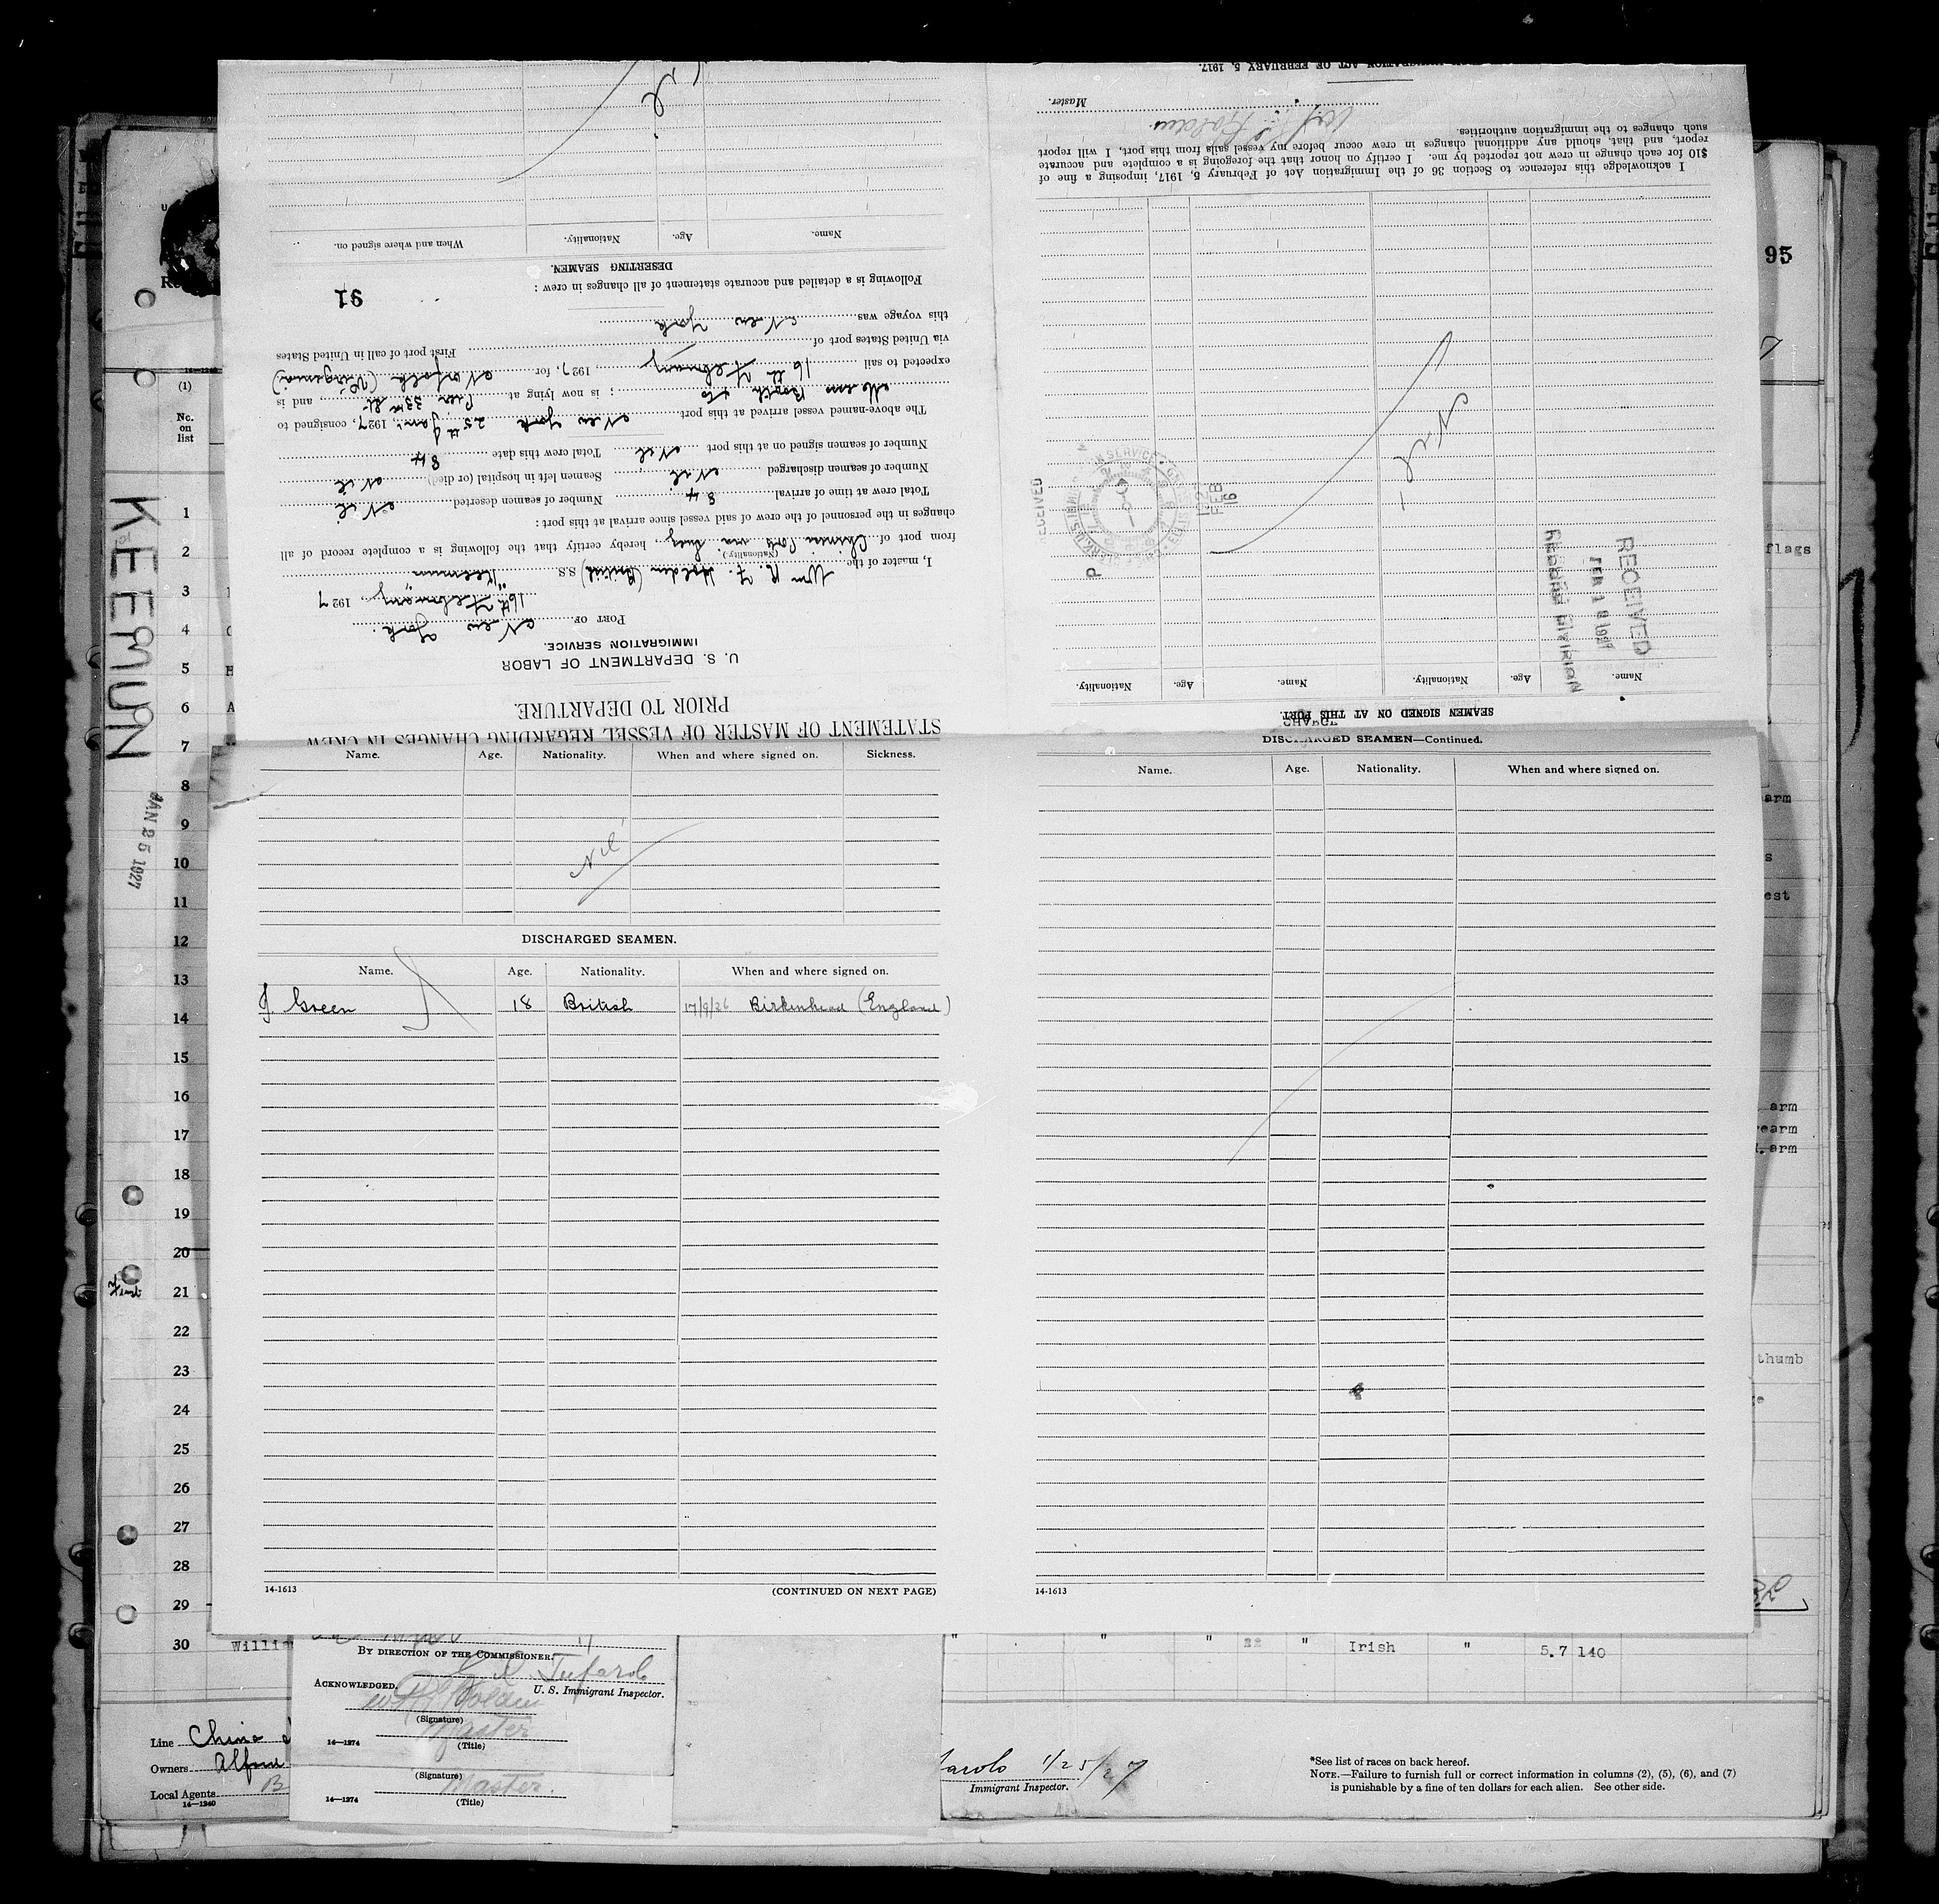 STATEMENT OF MASTER OF VESSEL REGARDING CHANGES IN CREW
PRIOR TO DEPARTURE.
U. S. DEPARTMENT OF LABOR
IMMIGRATION SERVICE.
PORT OF New York.
16th February, 1927
I, master of the Wm R. F. Holden (British) S.S. "Keemun"
(Nationality)
from port of Chinese Ports via Suez, hereby certify that the following is a complete record of all
changes in the personnel of the crew of said vessel since arrival at this port:
Total crew at time of arrival 84 Number of seamen deserted Nil
Number of seamen discharged Nil Seamen left in hospital (or died) Nil
Number of seamen signed on at this port Nil Total crew this date 84
The above-named vessel arrived at this port New York 25th Jan., 1927, consigned to
Messrs Booth & Co; is now lying at Pier 33rd St., and is
expected to sail 16th February 1927, for Norfolk (Virginia)
via United States port of First port of call in United States
this voyage was New York
Following is a detailed and accurate statement of all changes in crew:
91
DESERTING SEAMEN.
Name. Age. Nationality. When and where signed on.
SEAMEN SIGNED ON AT THIS PORT.
Name. Age. Nationality. Name. Age. Nationality.
RECEIVED
FEB 1 1927
RECEIVED
FEB 16
Nil
I acknowledge this reference to Section 36 of the Immigration Act of February 5, 1917, imposing a fine of
$10 for each change in crew not reported by me. I certify on honor that the foregoing is a complete and accurate
report, and that, should any additional changes in crew occur before my vessel sails from this port, I will report
such changes to the immigration authorities.
Holden
Master.
IMMIGRATION ACT OF FEBRUARY 5, 1917.
Name. Age. Nationality. When and where signed on. Sickness.
Nil
DISCHARGED SEAMEN.
Name. Age. Nationality. When and where signed on.
J. Green 18 British 17/9/26 Birkenhead (England)
14-1613 (CONTINUED ON NEXT PAGE)
DISCHARGED SEAMEN—Continued.
Name. Age. Nationality. When and where signed on.
14-1613
KEEMUN
JAN 25 1927
95
(1)
No.
on
list
1
2
3
4
5
6
7
8
9
10
11
12
13
14
15
16
17
18
19
20
21
22
23
24
25
26
27
28
29
30 " " " 22 " Irish " 5.7 140
flags
arm
arm
arm
thumb
BY DIRECTION OF THE COMMISSIONER:
U. S. Immigrant Inspector.
ACKNOWLEDGED.
Holden
(Signature)
Master
14—1274 (Title)
(Signature)
Master.
14—1274 (Title)
Line China
Owners Alfred
Local Agents B
14—1240
1/25/27
Immigrant Inspector.
*See list of races on back hereof.
NOTE.—Failure to furnish full or correct information in columns (2), (5), (6), and (7)
is punishable by a fine of ten dollars for each alien. See other side.